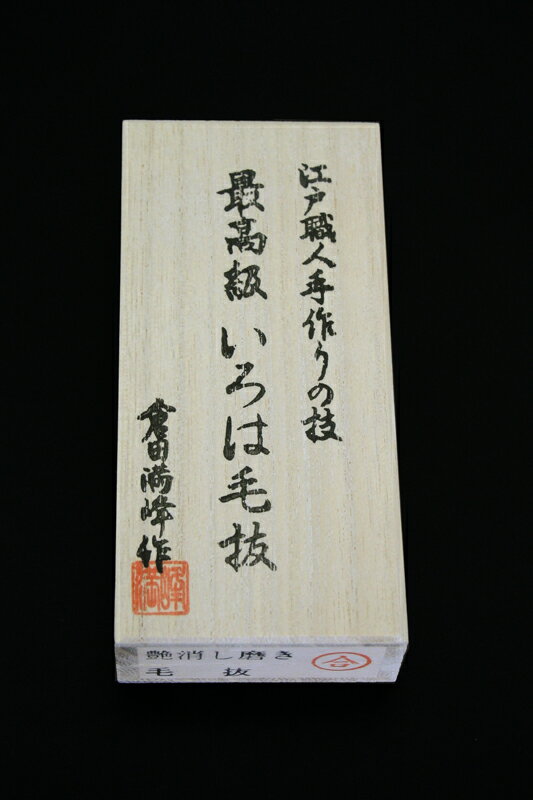 江戸職人手作りの技
最高級 いろは毛抜
倉田満峰作
満峰
艶消し磨き
毛 抜
合